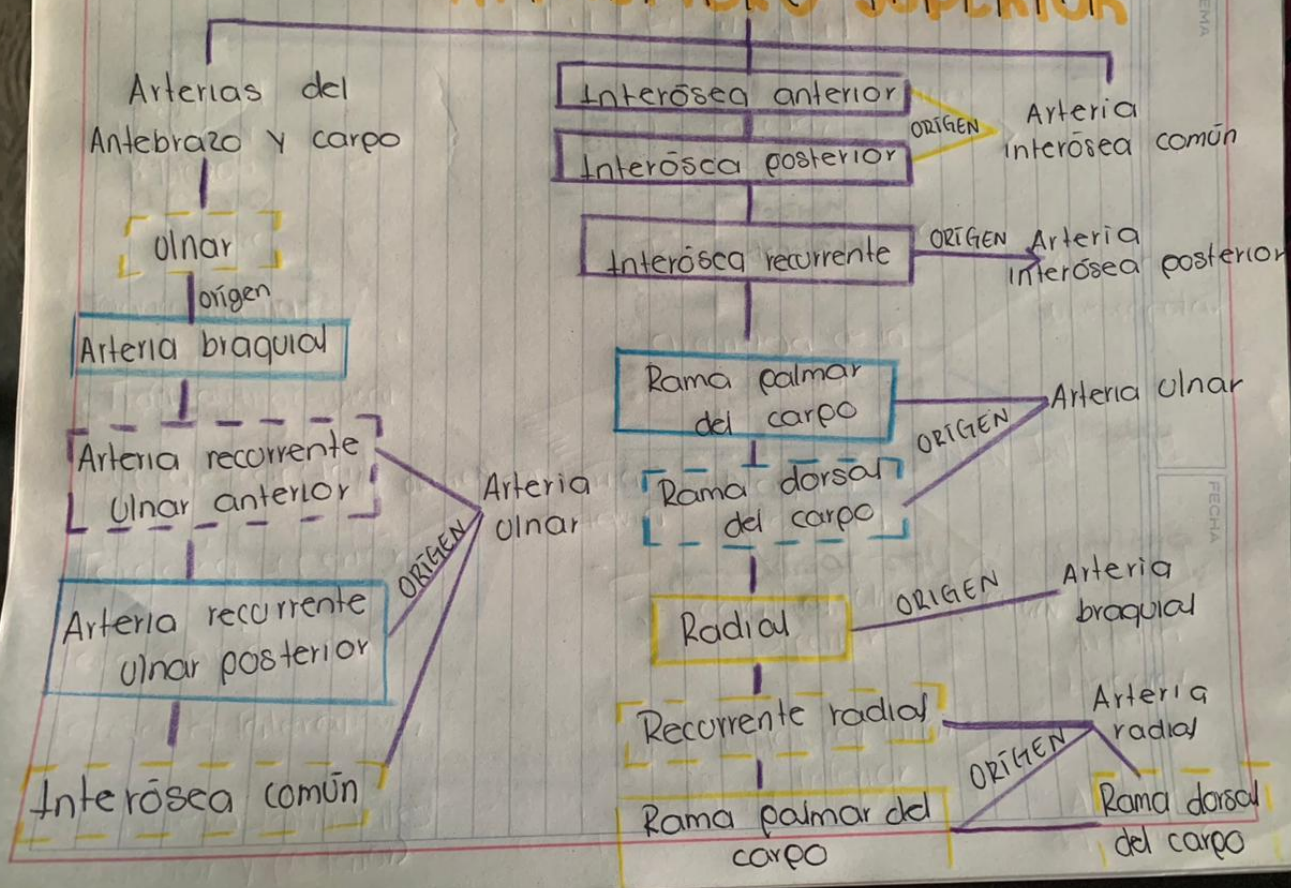 SUPERIOR
EMA
Arterias del
Antebrazo y carpo
Ulnar
origen
Arteria braquial
Arteria recurrente
Ulnar anterior
Arteria recurrente
Ulnar posterior
Interósea común
ORIGEN
Arteria
Ulnar
Interósea anterior
Interósea posterior
ORIGEN
Arteria
interósea común
Interósea recurrente
ORIGEN
Arteria
interósea posterior
Rama palmar
del carpo
Rama dorsal
del carpo
ORIGEN
Arteria Ulnar
FECHA
Radial
ORIGEN
Arteria
braquial
Recurrente radial
Rama palmar del
carpo
ORIGEN
Arteria
radial
Rama dorsal
del carpo